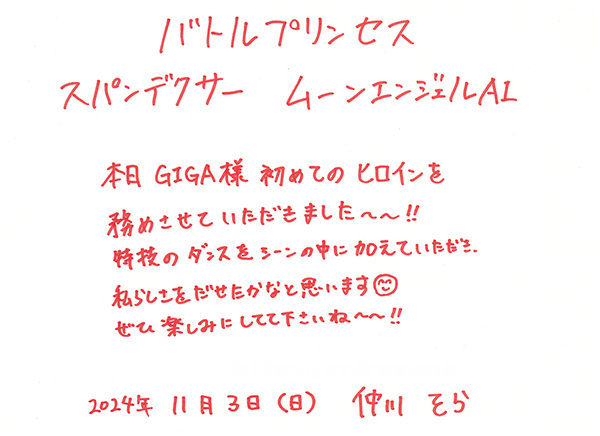 バトルプリンセス
スパンデクサー　ムーンエンジェルAI
本日 GIGA様 初めてのヒロインを
務めさせていただきました〜〜!!
特技のダンスをシーンの中に加えていただき、
私らしさをだせたかなと思います😊
ぜひ楽しみにしてて下さいね〜〜!!
2024年 11月3日(日)　仲川そら